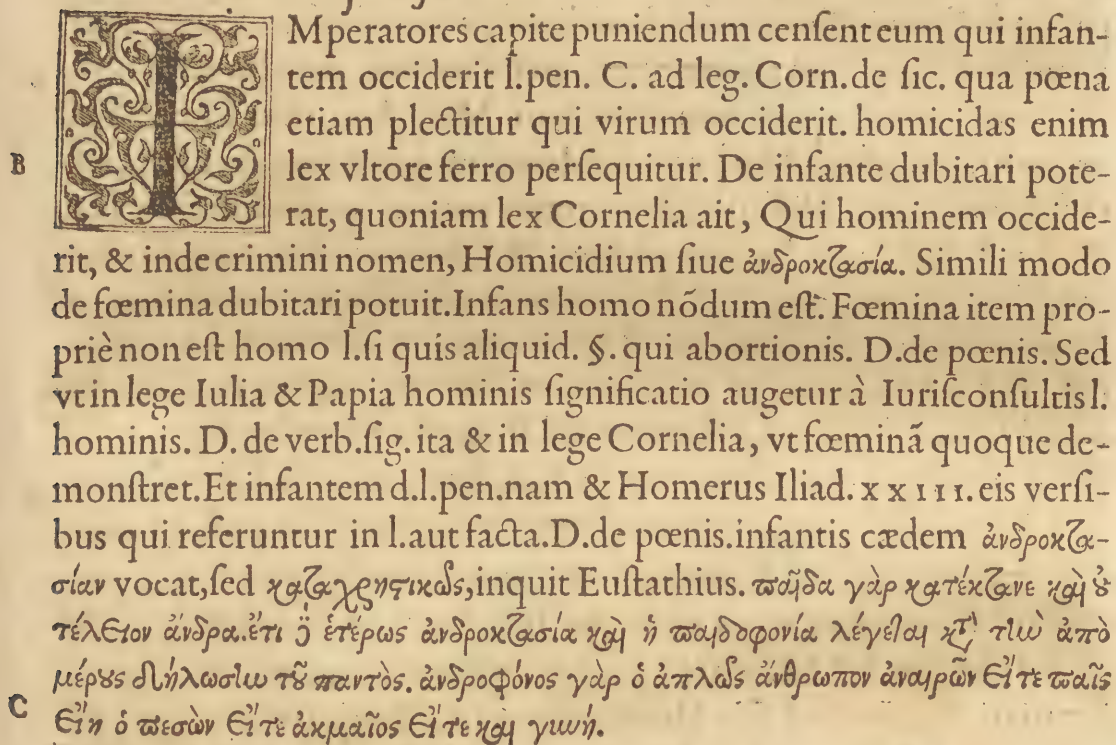 IMperatores capite puniendum cenſent eum qui infan-
tem occiderit l.pen. C. ad leg. Corn.de ſic. qua pœna
etiam plectitur qui virum occiderit. homicidas enim
B lex vltore ferro perſequitur. De infante dubitari pote-
rat, quoniam lex Cornelia ait, Qui hominem occide-
rit, & inde crimini nomen, Homicidium ſiue ἀνδροκτασία. Simili modo
de fœmina dubitari potuit. Infans homo nōdum eſt. Fœmina item pro-
priè non eſt homo l.ſi quis aliquid. §. qui abortionis. D.de pœnis. Sed
vt in lege Iulia & Papia hominis ſignificatio augetur à Iuriſconſultis l.
hominis. D. de verb.ſig. ita & in lege Cornelia, vt fœminā quoque de-
monſtret. Et infantem d.l.pen.nam & Homerus Iliad. XXIII. eis verſi-
bus qui referuntur in l.aut facta.D.de pœnis.infantis cædem ἀνδροκτα-
σίαν vocat, ſed καταχρηστικῶς, inquit Euſtathius. παῖδα γὰρ κατέκτανε καὶ οὐ
τέλειον ἄνδρα. ἔτι δὲ ἑτέρως ἀνδροκτασία καὶ ἡ παιδοφονία λέγεται κατὰ τὴν ἀπὸ
μέρους δήλωσιν τοῦ παντὸς. ἀνδροφόνος γὰρ ὁ ἁπλῶς ἄνθρωπον ἀναιρῶν εἴτε παῖς
C εἴη ὁ πεσὼν εἴτε ἀκμαῖος εἴτε καὶ γυνή.